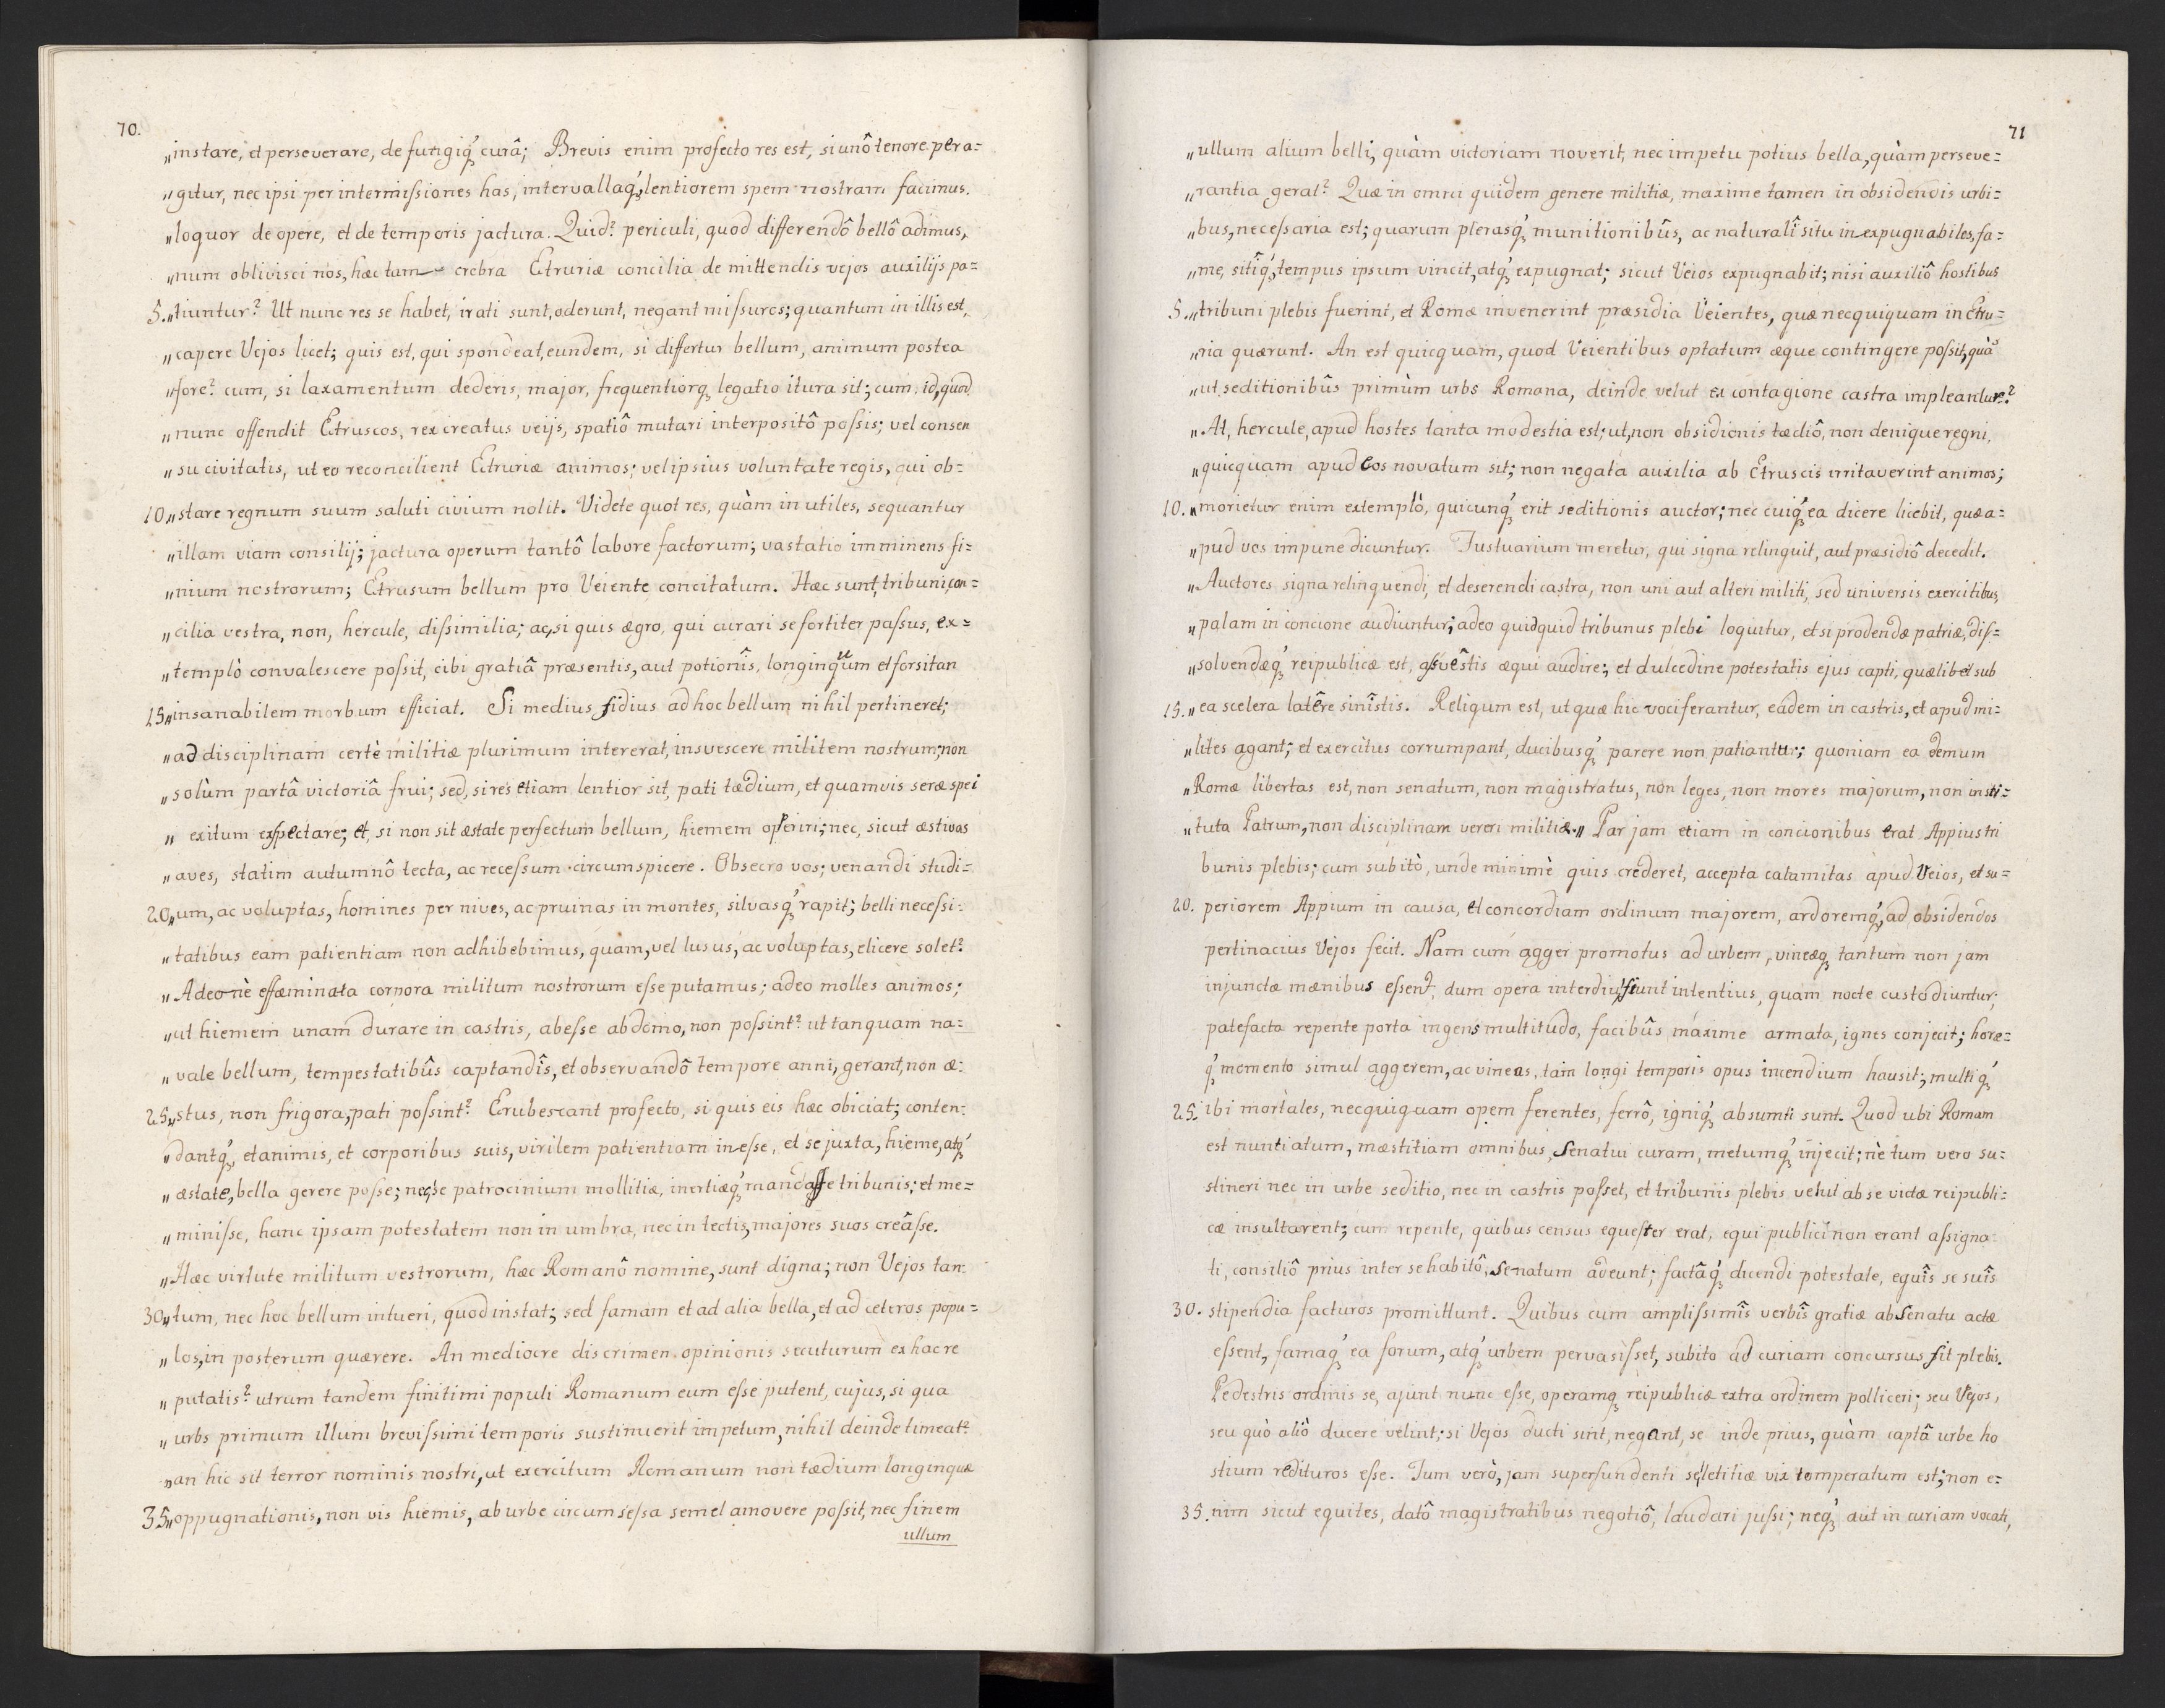 70.
„instare, et perseverare, defutigiq́ꝫ curâ; Brevis enim profecto res est, si unô tenore pera=
„gitur, nec ipsi per intermiſsiones has, intervallaq́ꝫ, lentiorem spem nostram facimus.
„loquor de opere, et de temporis jactura. Quid? periculi, quod differendô bellô adimus,
„num oblivisci nos, hæc tam crebra Etruriæ concilia de mittendis vejos auxilijs pa=
5. „tiuntur? Ut nunc res se habet, irati sunt, oderunt, negant miſsuros; quantum in illis est,
„capere Vejos licet; quis est, qui spondeat, eundem, si differtur bellum, animum postea
„fore? cum, si laxamentum dederis, major, frequentiorqꝫ legatio itura sit; cum id, quod
„nunc offendit Etruscos, rex creatus veijs, spatiô mutari interpositô poſsis; vel consen
„su civitatis, ut eo reconcilient Etruriæ animos; vel ipsius voluntate regis, qui ob=
10 „stare regnum suum saluti civium nolit. Videte quot res, quàm inutiles, sequantur
„illam viam consilij; jactura operum tantô labore factorum; vastatio imminens fi=
„nium nostrorum; Etrusum bellum pro Veiente concitatum. Hæc sunt, tribuni, con=
„cilia vestra, non, hercule, diſsimilia; ac, si quis ægro, qui curari se fortiter paſsus, ex=
„templò convalescere poſsit, cibi gratiâ præsentis, aut potionîs, longinquum et forsitan
15 „insanabilem morbum efficiat. Si medius fidius ad hoc bellum nihil pertineret;
„ad disciplinam certè militiæ plurimum intererat, insvescere militem nostrum; non
„solùm partâ victoriâ frui; sed, si res etiam lentior sit, pati tædium, et quamvis seræ spei
„exitum exspectare; et, si non sit æstate perfectum bellum, hiemem opperiri; nec, sicut æstivas
„aves, statim autumnô tecta, ac receſsum circumspicere. Obsecro vos; venandi studi=
20 „um, ac voluptas, homines per nives, ac pruinas in montes, silvasq́ꝫ rapit; belli neceſsi=
„tatibus eam patientiam non adhibebimus, quam, vel lusus, ac voluptas, elicere solet?
„Adeo nè effæminata corpora militum nostrorum eſse putamus; adeo molles animos;
„ut hiemem unam durare in castris, abeſse ab domo, non poſsint? ut tanquam na=
„vale bellum, tempestatibûs captandîs, et observandô tempore anni, gerant, non æ=
25 „stus, non frigora, pati poſsint? Erubescant profecto, si quis eis hæc obiciat; conten=
„dantq́ꝫ, et animis, et corporibus suis, virilem patientiam ineſse, et se juxta, hieme, atq́ꝫ
„æstate, bella gerere poſse; nec se patrocinium mollitiæ, inertiæq́ꝫ mandaſse tribunis; et me=
„miniſse, hanc ipsam potestatem non in umbra, nec in tectis, majores suos creâſse.
„Hæc virtute militum vestrorum, hæc Romanô nomine, sunt digna; non Vejos tan=
30 „tum, nec hoc bellum intueri, quod instat; sed famam et ad alia bella, et ad ceteros popu=
„los, in posterum quærere. An mediocre discrimen opinionis secuturum ex hac re
„putatis? utrum tandem finitimi populi Romanum eum eſse putent, cujus, si qua
„urbs primum illum breviſsimi temporis sustinuerit impetum, nihil deinde timeat?
„an hic sit terror nominis nostri, ut exercitum Romanum non tædium longinquæ
35 „oppugnationis, non vis hiemis, ab urbe circumseſsa semel amovere poſsit, nec finem
ullum
71
„ullum alium belli, quàm victoriam noverit, nec impetu potius bella, quàm perseve=
„rantia gerat? Quæ in omni quidem genere militiæ, maxime tamen in obsidendis urbi=
„bus, neceſsaria est; quarum plerasq́ꝫ munitionibûs, ac naturalî situ inexpugnabiles, fa=
„me, sitîq́ꝫ, tempus ipsum vincit, atq́ꝫ expugnat; sicut Veios expugnabit; nisi auxiliô hostibus
5. „tribuni plebis fuerint, et Romæ invenerint præsidia Veientes, quæ necquiquam in Etru=
„ria quærunt. An est quicquam, quod Veientibus optatum æque contingere poſsit, quà
„ut seditionibûs primùm urbs Romana, deinde velut ex contagione castra impleantur?
„At, hercule, apud hostes tanta modestia est; ut, non obsidionis tædiô, non denique regni,
„quicquam apud eos novatum sit; non negata auxilia ab Etruscis irritaverint animos;
10. „morietur enim extemplò, quicunq́ꝫ erit seditionis auctor; nec cuiq́ꝫ ea dicere licebit, quæ a=
„pud vos impune dicuntur. Fustuarium meretur, qui signa relinquit, aut præsidiô decedit.
„Auctores signa relinquendi, et deserendi castra, non uni aut alteri militi, sed universis exercitibus,
„palam in concione audiuntur; adeo quidquid tribunus plebi loquitur, etsi prodendæ patriæ, diſ=
„solvendæq́ꝫ reipublicæ est, aſsvêstis æqui audire; et dulcedine potestatis ejus capti, quælibet sub
15. „ea scelera latêre sinîstis. Reliqum est, ut quæ hic vociferantur, eadem in castris, et apud mi=
„lites agant; et exercitus corrumpant, ducibusq́ꝫ parere non patiantur; quoniam ea demum
„Romæ libertas est, non senatum, non magistratus, non leges, non mores majorum, non insti=
„tuta Patrum, non disciplinam vereri militiæ.„ Par jam etiam in concionibus erat Appius tri
bunis plebis; cum subitò, unde minimè quis crederet, accepta calamitas apud Veios, et su=
20. periorem Appium in causa, et concordiam ordinum majorem, ardoremq́ꝫ, ad obsidendos
pertinacius Vejos fecit. Nam cum agger promotus ad urbem, vineæqꝫ tantum non jam
injunctæ mænibus eſsent, dum opera interdiu fiunt intentius, quam nocte custodiuntur;
patefacta repente porta ingens multitudo, facibûs maxime armata, ignes conjecit; horæ=
q́ꝫ momento simul aggerem, ac vineas, tam longi temporis opus incendium hausit; multiq́ꝫ
25. ibi mortales, necquiquam opem ferentes, ferrô, igniq́ꝫ absumti sunt. Quod ubi Romam
est nuntiatum, mæstitiam omnibus, Senatui curam, metumq́ꝫ injecit; nè tum vero su=
stineri nec in urbe seditio, nec in castris poſset, et tribunis plebis velut ab se victæ reipubli=
cæ insultarent; cum repente, quibus census equester erat, equi publici non erant aſsigna=
ti, consiliô prius inter se habitô, Senatum adeunt; factâq́ꝫ dicendi potestate, equîs se suîs
30. stipendia facturos promittunt. Quibus cum ampliſsimîs verbîs gratiæ ab Senatu actæ
eſsent, famaq́ꝫ ea forum, atq́ꝫ urbem pervasiſset, subito ad curiam concursus fit plebis.
Pedestris ordinis se, ajunt nunc eſse, operamqꝫ reipublicæ extra ordinem polliceri; seu Vejos,
seu quò aliò ducere velint; si Vejos ducti sint, negant, se inde prius, quàm captâ urbe ho
stium redituros eſse. Tum verò, jam superfundenti se letitiæ vix temperatum est; non e=
35. nim sicut equites, datô magistratibus negotiô, laudari juſsi; neq́ꝫ aut in curiam vocati,